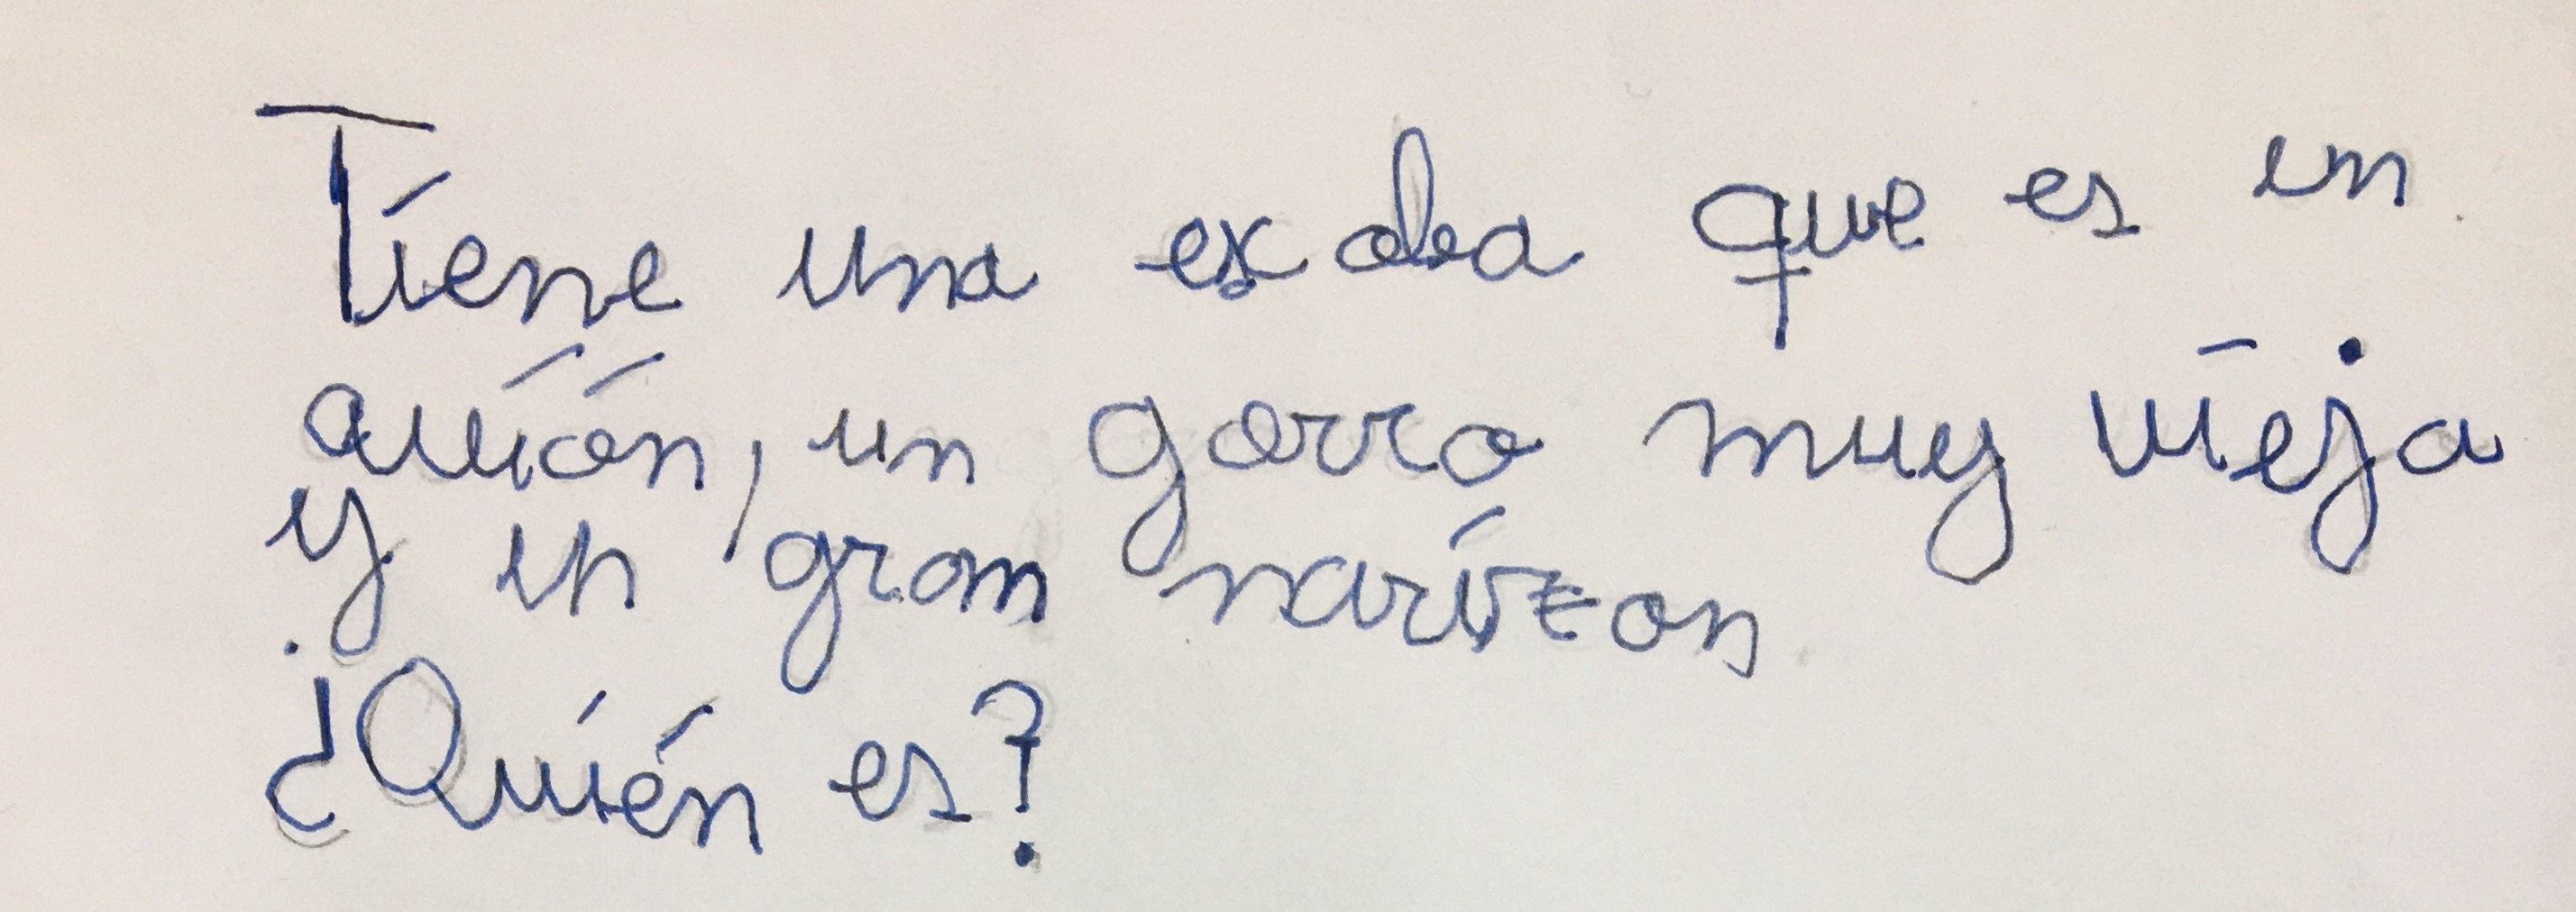 Tiene una escoba que es un
avión, un gorro muy vieja
y un gran narizon
¿Quién es?